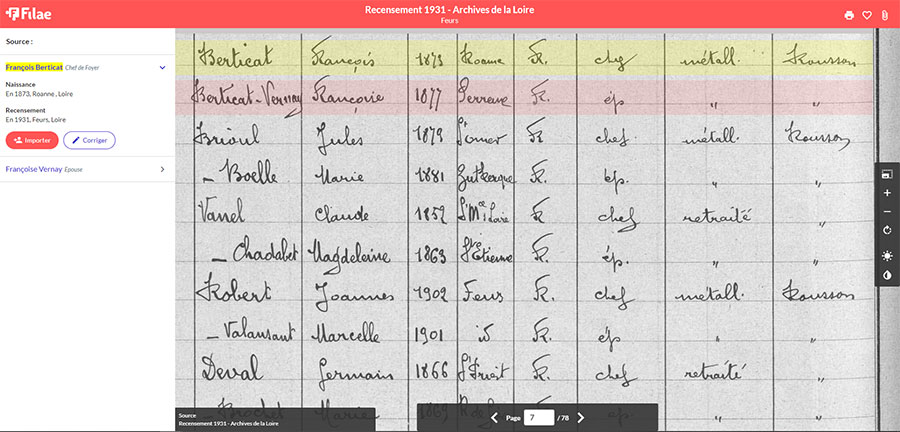 Filae
Recensement 1931 - Archives de la Loire
Feurs
Source :
François Berticat Chef de Foyer
Naissance
En 1873, Roanne , Loire
Recensement
En 1931, Feurs, Loire
Importer Corriger
Françoise Vernay Epouse
Berticat François 1873 Roanne Fr. chef métall. Rousson
Berticat-Vernay Françoise 1877 Perreux Fr. ép. " "
Jules 1879 St Omer Fr chef métall. Rousson
- Boelle Marie 1881 Zutkerque Fr. ép. " "
Vanel Claude 1852 Fr chef retraité "
- Chadabet Magdeleine 1863 St Etienne Fr. ép. " "
Robert Joannes 1902 Feurs Fr. chef métall. Rousson
- Valansant Marcelle 1901 id Fr ép " "
Deval Germain 1866 St Priest Fr. chef retraité "
- Brochet Marie 1869 ép. " "
Source
Recensement 1931 - Archives de la Loire
Page 7 / 78